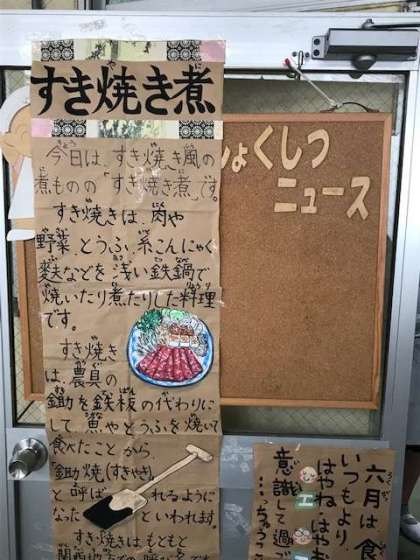 すき焼き煮
今日は、すき焼き風の
煮ものの「すき焼き煮」です。
すき焼きは、肉や
野菜、とうふ、糸こんにゃく、
麩などを浅い鉄鍋で
焼いたり煮たりした料理
です。
すき焼き
は、農具の
鋤を鉄板の代わりに
して魚やとうふを焼いて
食べたことから、
「鋤焼(すきやき)」
と呼ばれるように
なったといわれます。
すき焼きはもともと
関西地方での呼び名です
ょくしつ
ニュース
六月は食
いつもより
はやね はや
意識して過ご